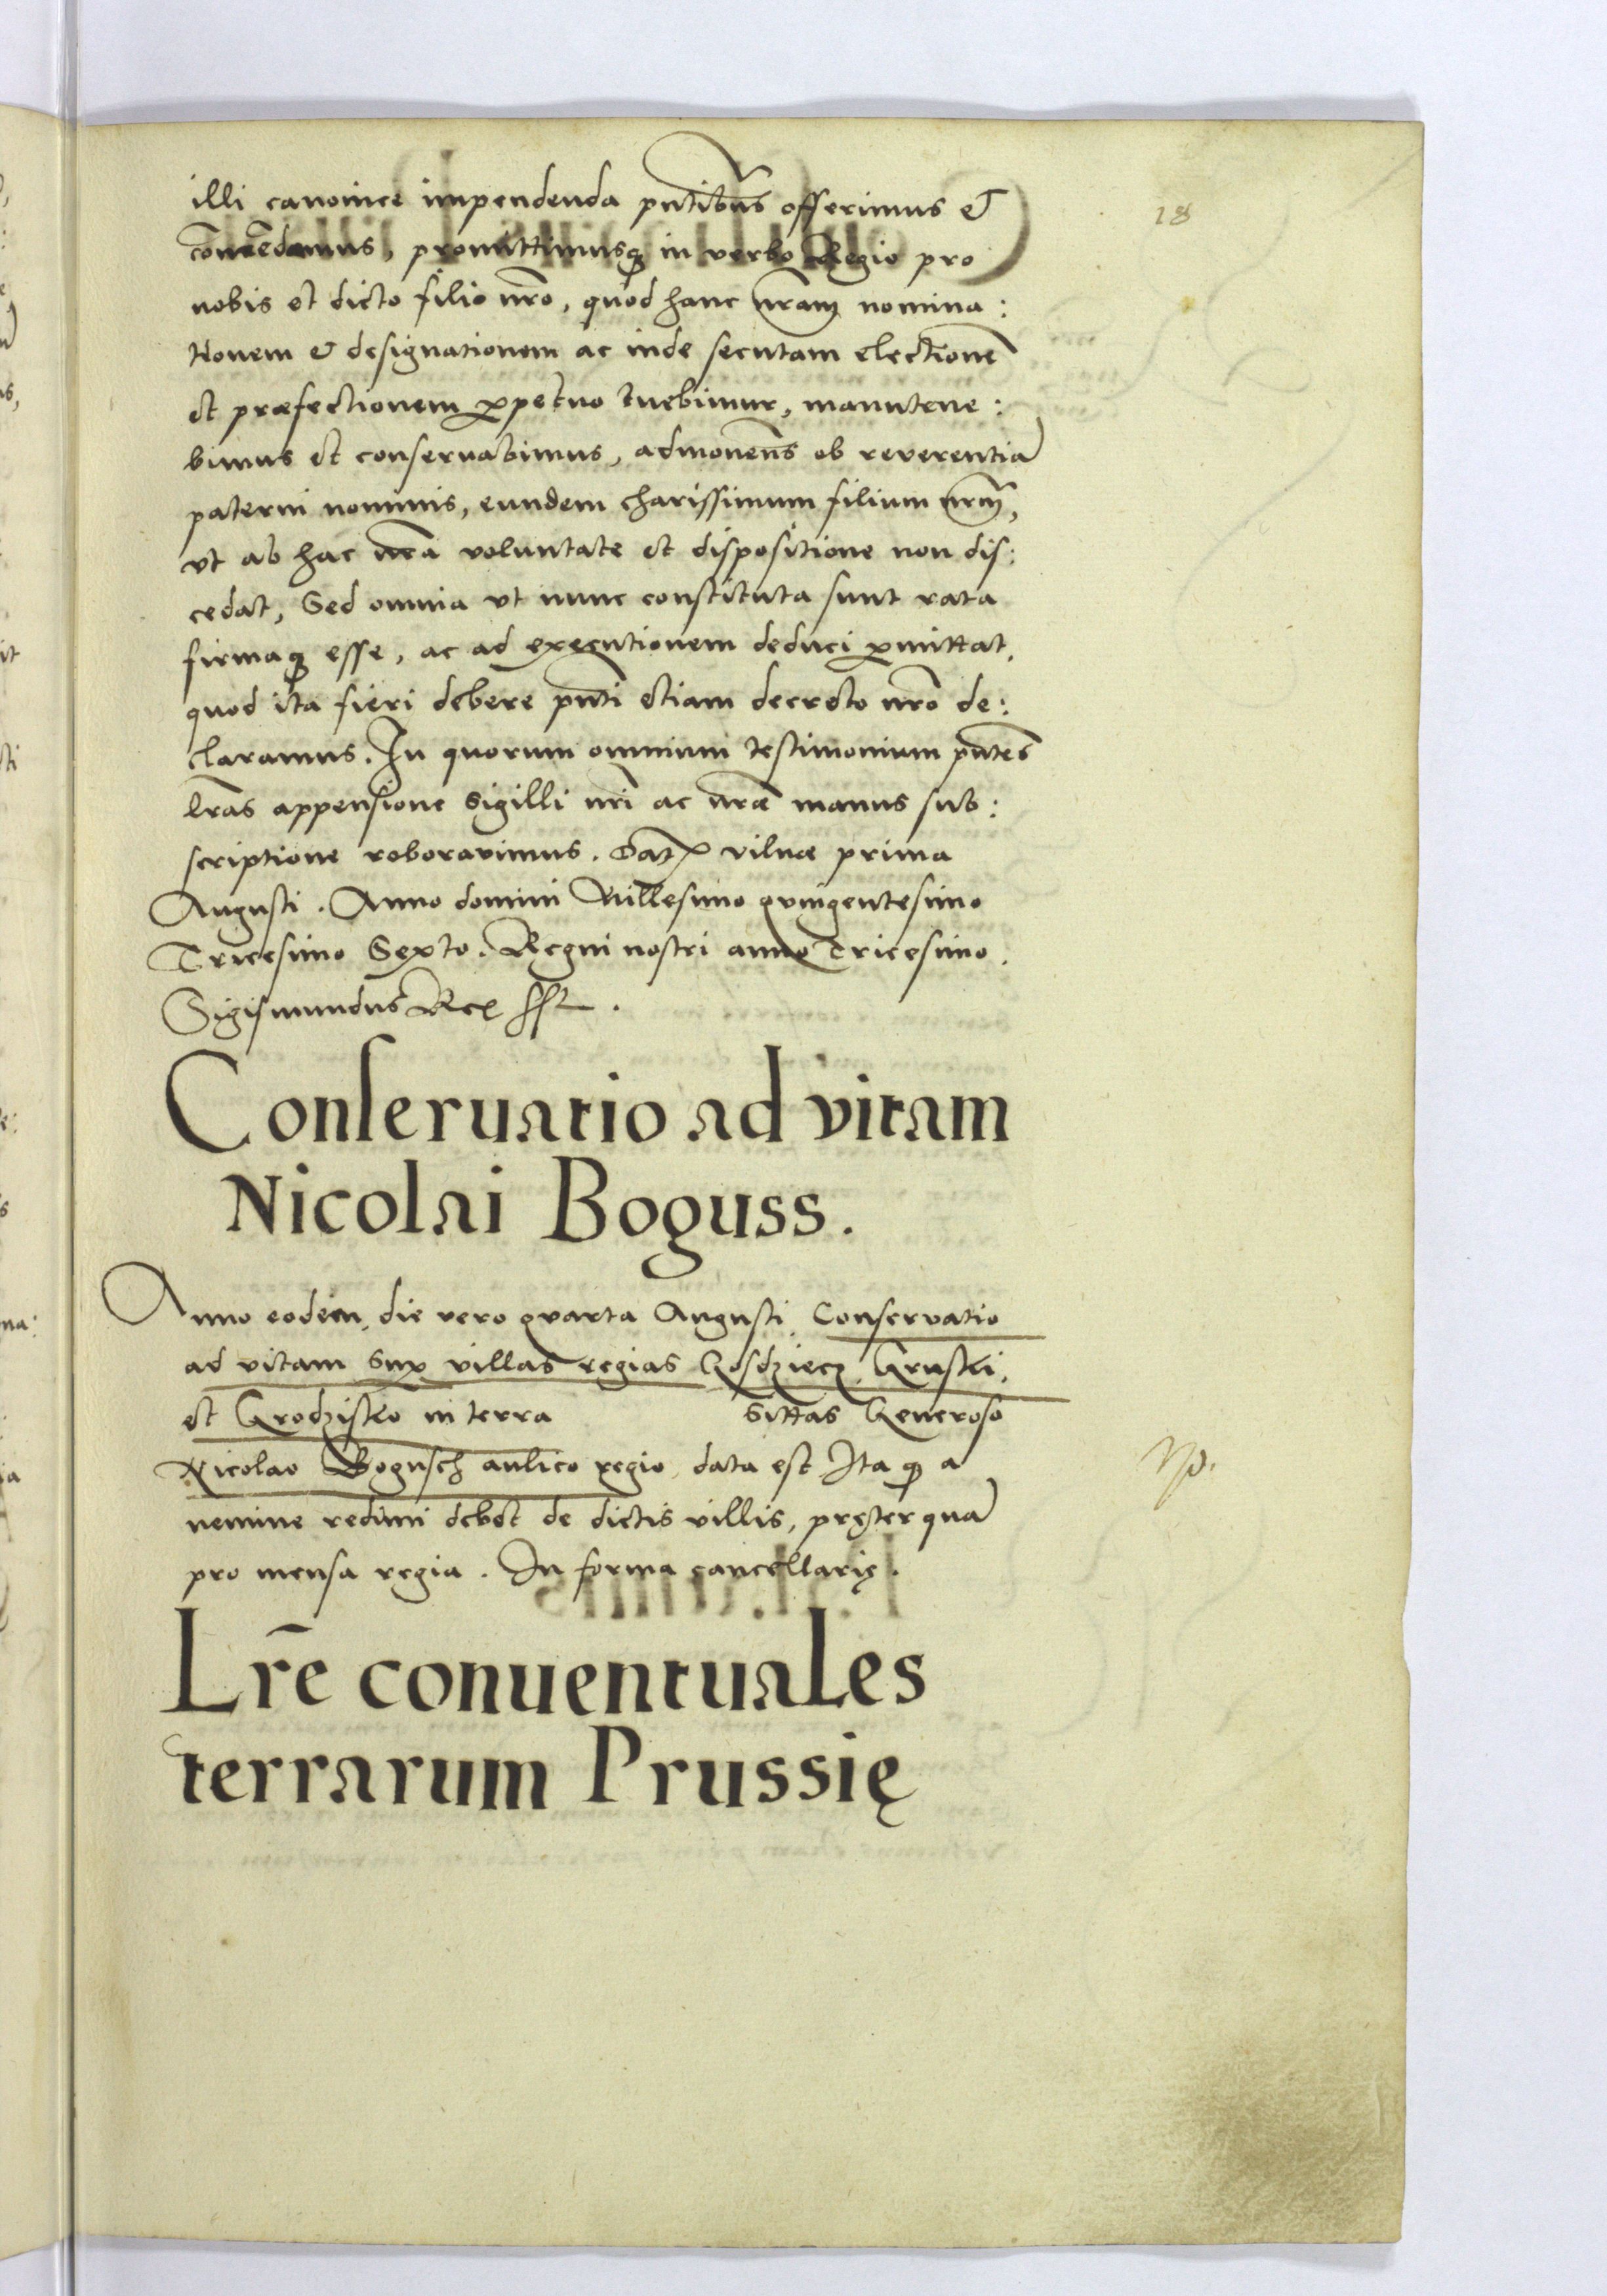 illi canonice impendenda pn̄tibus offerimus &
concedimus, promittimusq in verbo Regio pro
nobis et dicto filio nr̄o, quod hanc nr̄am nomina:
tionem & designationem ac inde secutam electionē
et præfectionem ꝑpetuo tuebimur, manutene:
bimus et conservabimus, admonen̄s ob reverentiā
paterni nominis, eundem charissimum filium nr̄m,
vt ab hac nr̄a voluntate et dispositione non dis:
cedat, Sed omnia vt nunc constituta sunt rata
firmaq esse, ac ad executionem deduci ꝑmittat,
quod ita fieri debere pn̄ti etiam decreto nr̄o de:
claramus. In quorum omnium testimonium pn̄tes
lr̄as appensione sigilli nr̄i ac nr̄æ manus sub:
scriptione roboravimus. Dat vilnæ prima
Augusti. Anno domini Millesimo quingentesimo
Tricesimo Sexto. Regni nostri anno Tricesimo.
Sigismundus Rex sst.
Conseruatio ad vitam
Nicolai Boguss.
Anno eodem, die vero quarta Augusti, Conservatio
ad vitam sup villas regias Gosdziecz, Gruski,
et Grodzisko in terra sittas Generoso
Nicolao Bogusch aulico regio, data est Ita q a
nemine redimi debet de dictis villis, pręterquā
pro mensa regia. In forma cancellarię.
Lr̄e conuentuales
terrarum Prussię
18